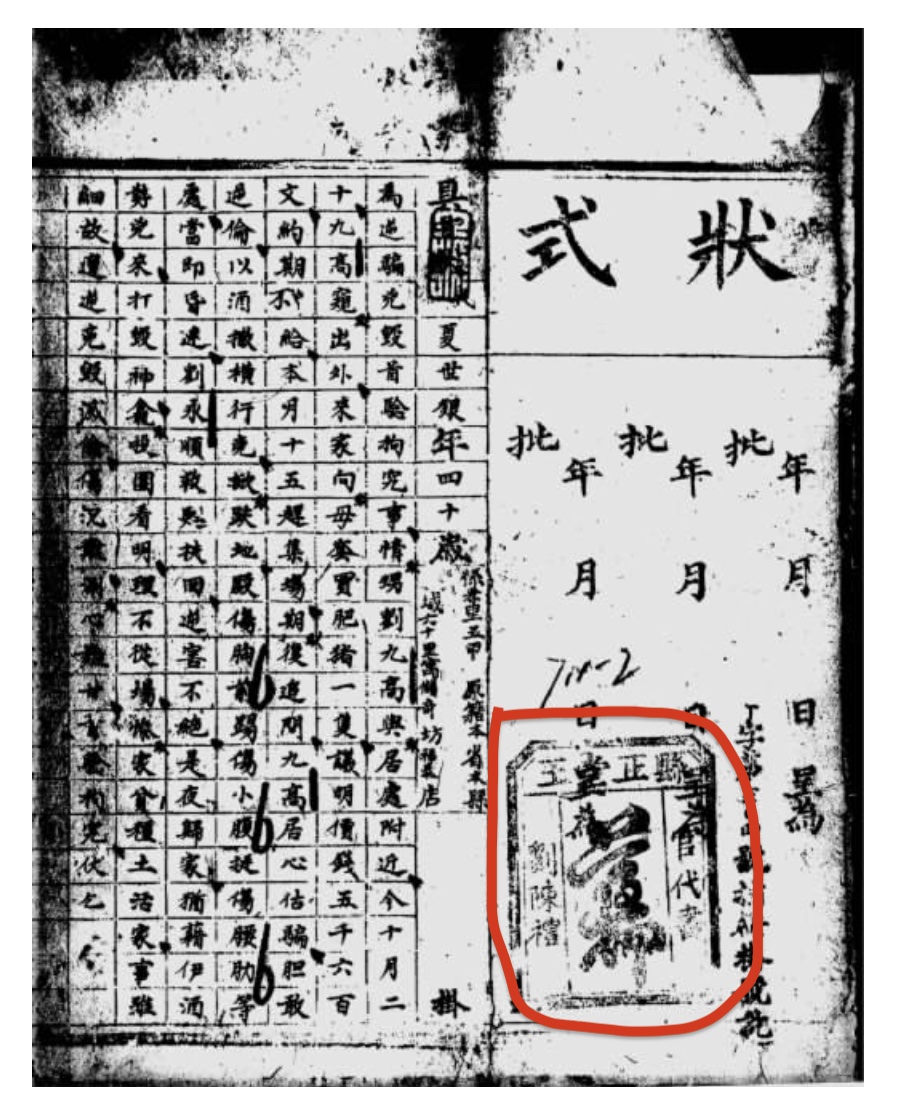 狀式
年月日呈為
批年月日
批年月日
批
714-2
縣正堂王
官代書
劉陳禮
具狀夏世銀年四十歲掛
五甲 原籍本省本縣
城六十里 店
為逆騙兇毀首驗拘究事情劉九高與居處附近今十月二
十九高竄出外來家向母套買肥猪一隻議明價錢五千六百
文約期不給本月十五趕集場期復追問九高居心估騙胆敢
逆倫以酒撒橫行兇掀跌地毆傷胸前踢傷小腹挺傷腰肋等
處當即昏迷劉永順救起扶回逆害不絕是夜歸家猶藉伊酒
勢兇來打毀神龕圍看明理不從場家貧種土活家事雖
細故遭逆兇毀滅倫傷沉心難甘驗拘究伏乞